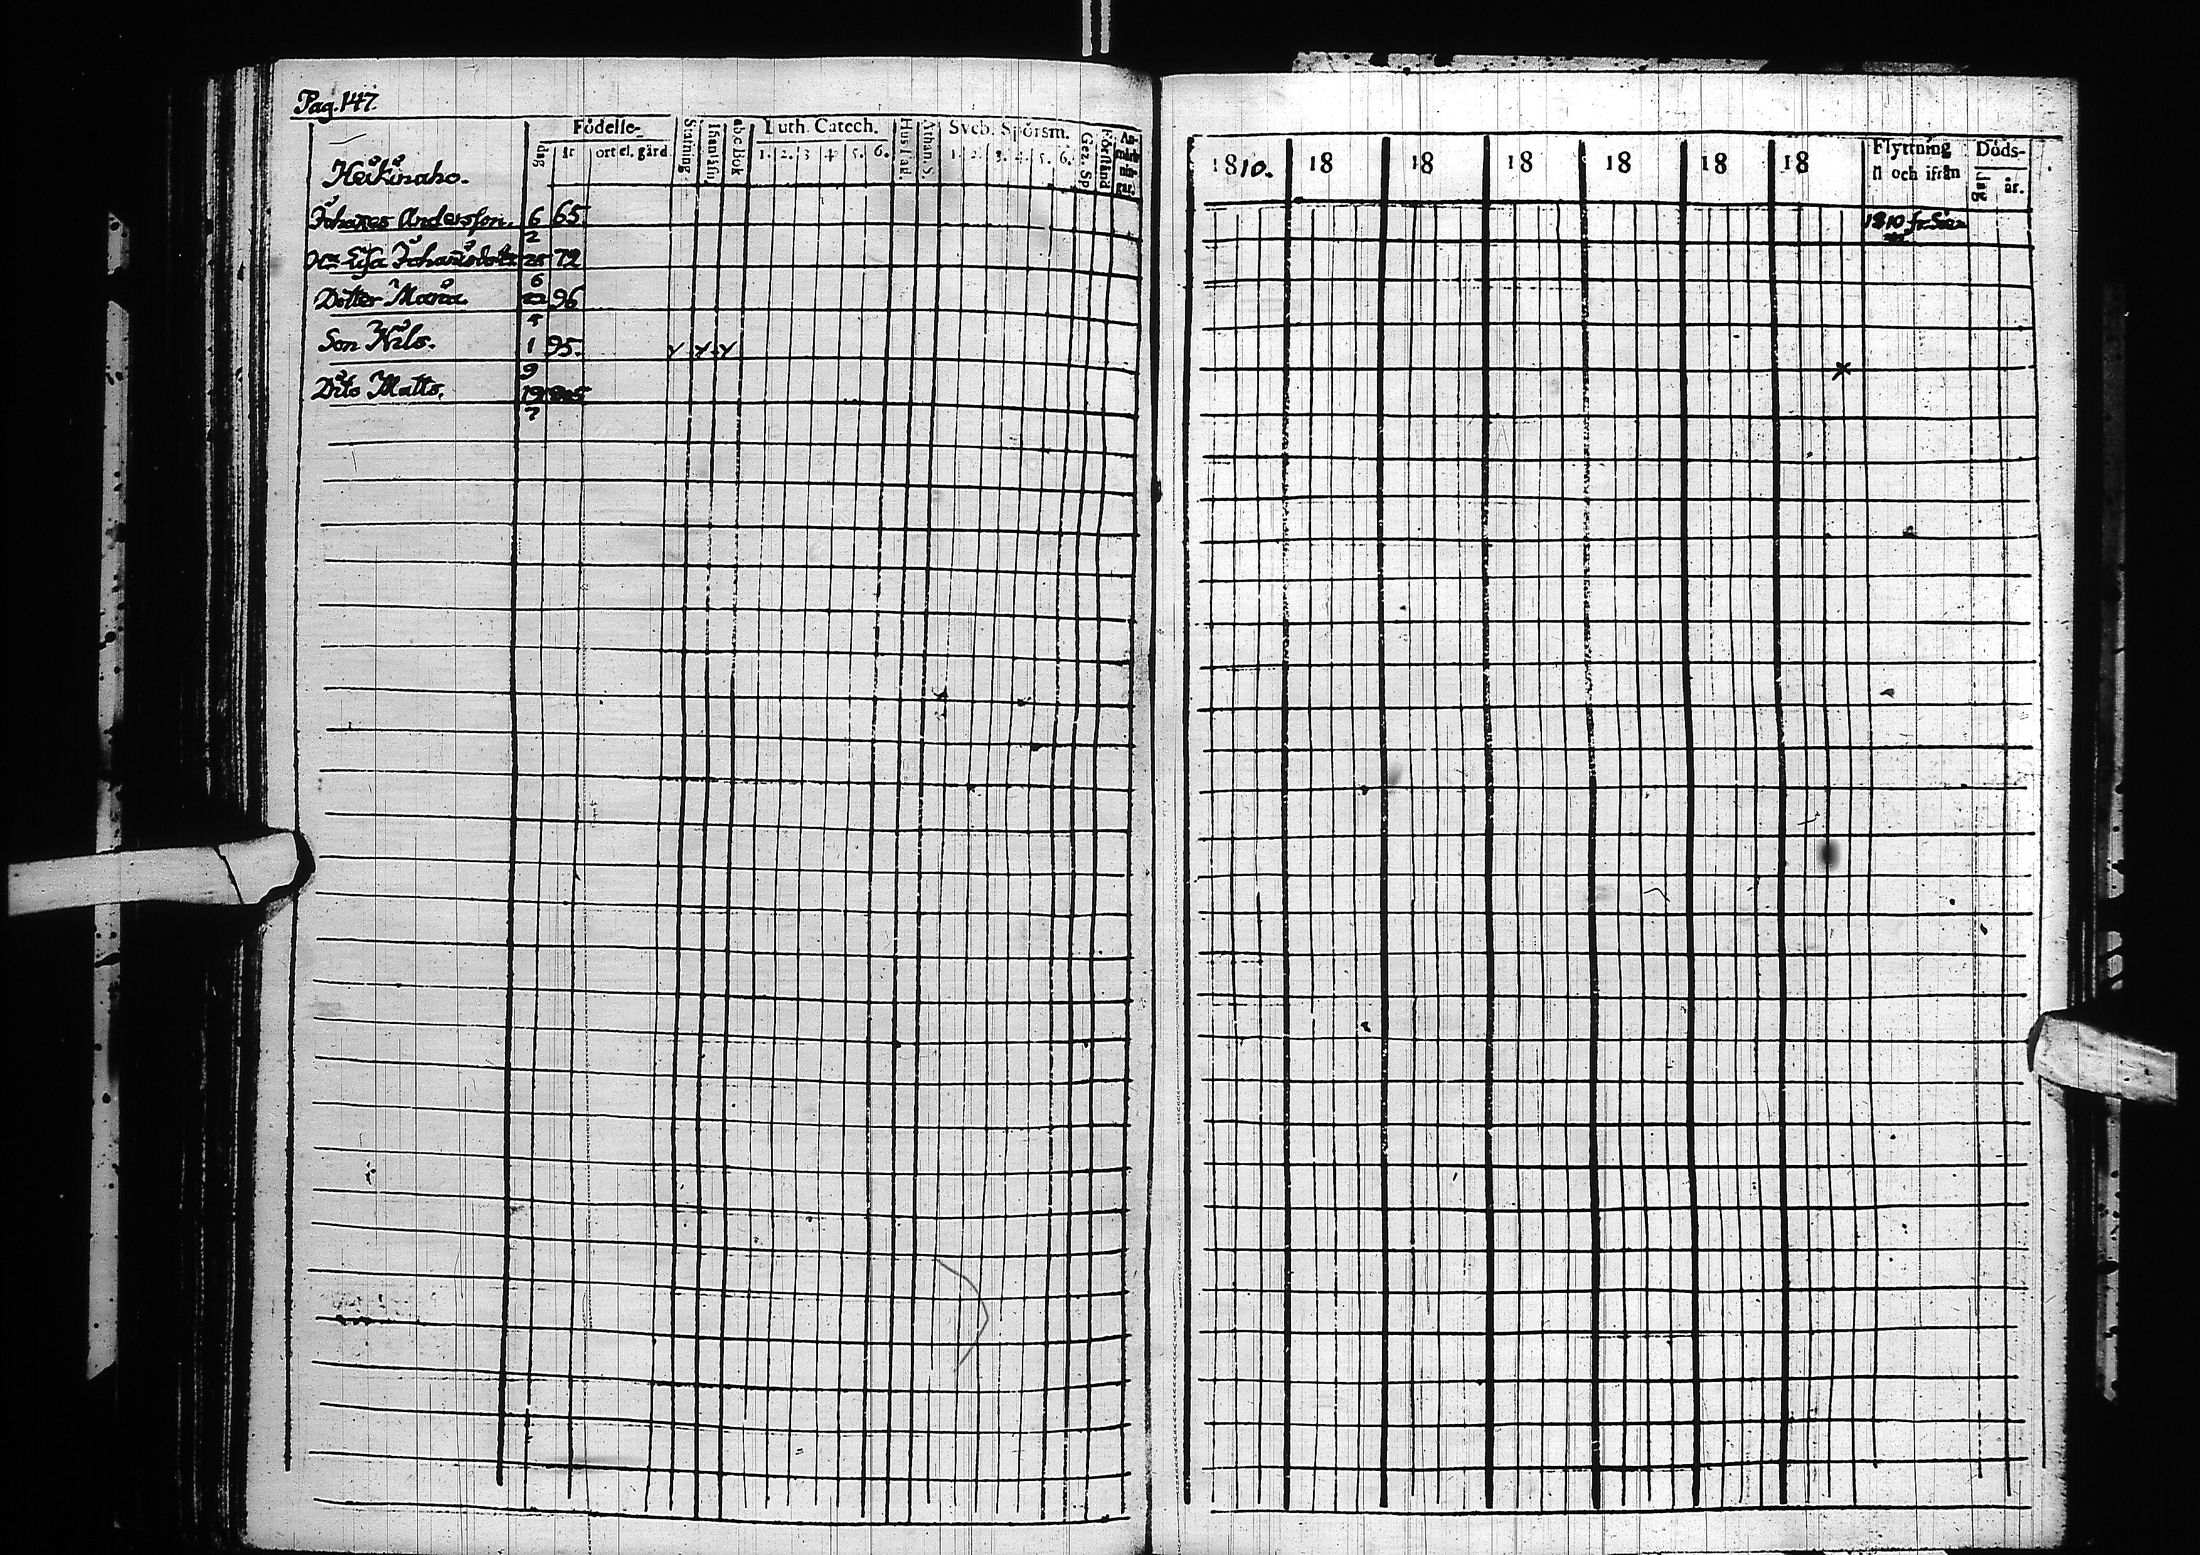 Pag. 147.
Födelse-
dag år ort el. gård.
Stafning. Innanläsn. abc bok
Luth. Catech.
1. 2. 3 4. 5. 6.
Hus tafl. Athan. S.
Sveb. Spörsm.
1. 2. 3. 4. 5. 6.
Gez. Sp. Förstånd
Heikinaho.
Johanes Andersson. 6 65.
2
Lisa Johansdotter 25 72
6
Dotter Maria 22 96
Son Nils. 1 95. y y y
9
Dito Matts. 19 1805
7
1810. 18 18 18 18 18 18
Flyttning
til och ifrån
Döds-
dag år.
1810 fr